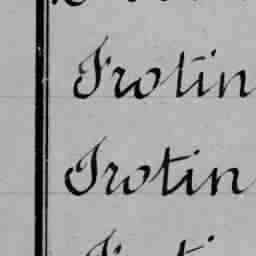 Frotin
Frotin